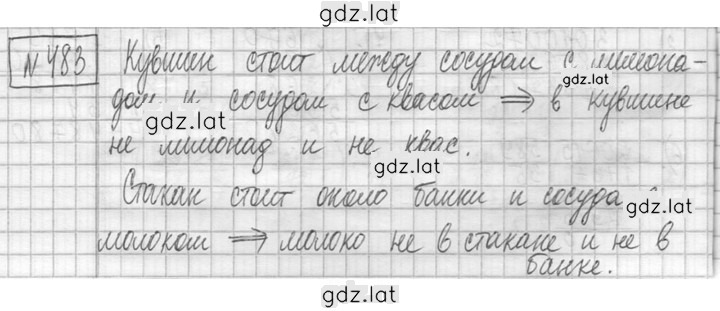 gdz.lat
№ 483 Кувшин стоит между сосудом с лимона-
дом и сосудом с квасом ⇒ в кувшине
gdz.lat
gdz.lat
не лимонад и не квас.
gdz.lat
Стакан стоит около банки и сосуда
gdz.lat
молоком ⇒ молоко не в стакане и не в
банке.
gdz.lat